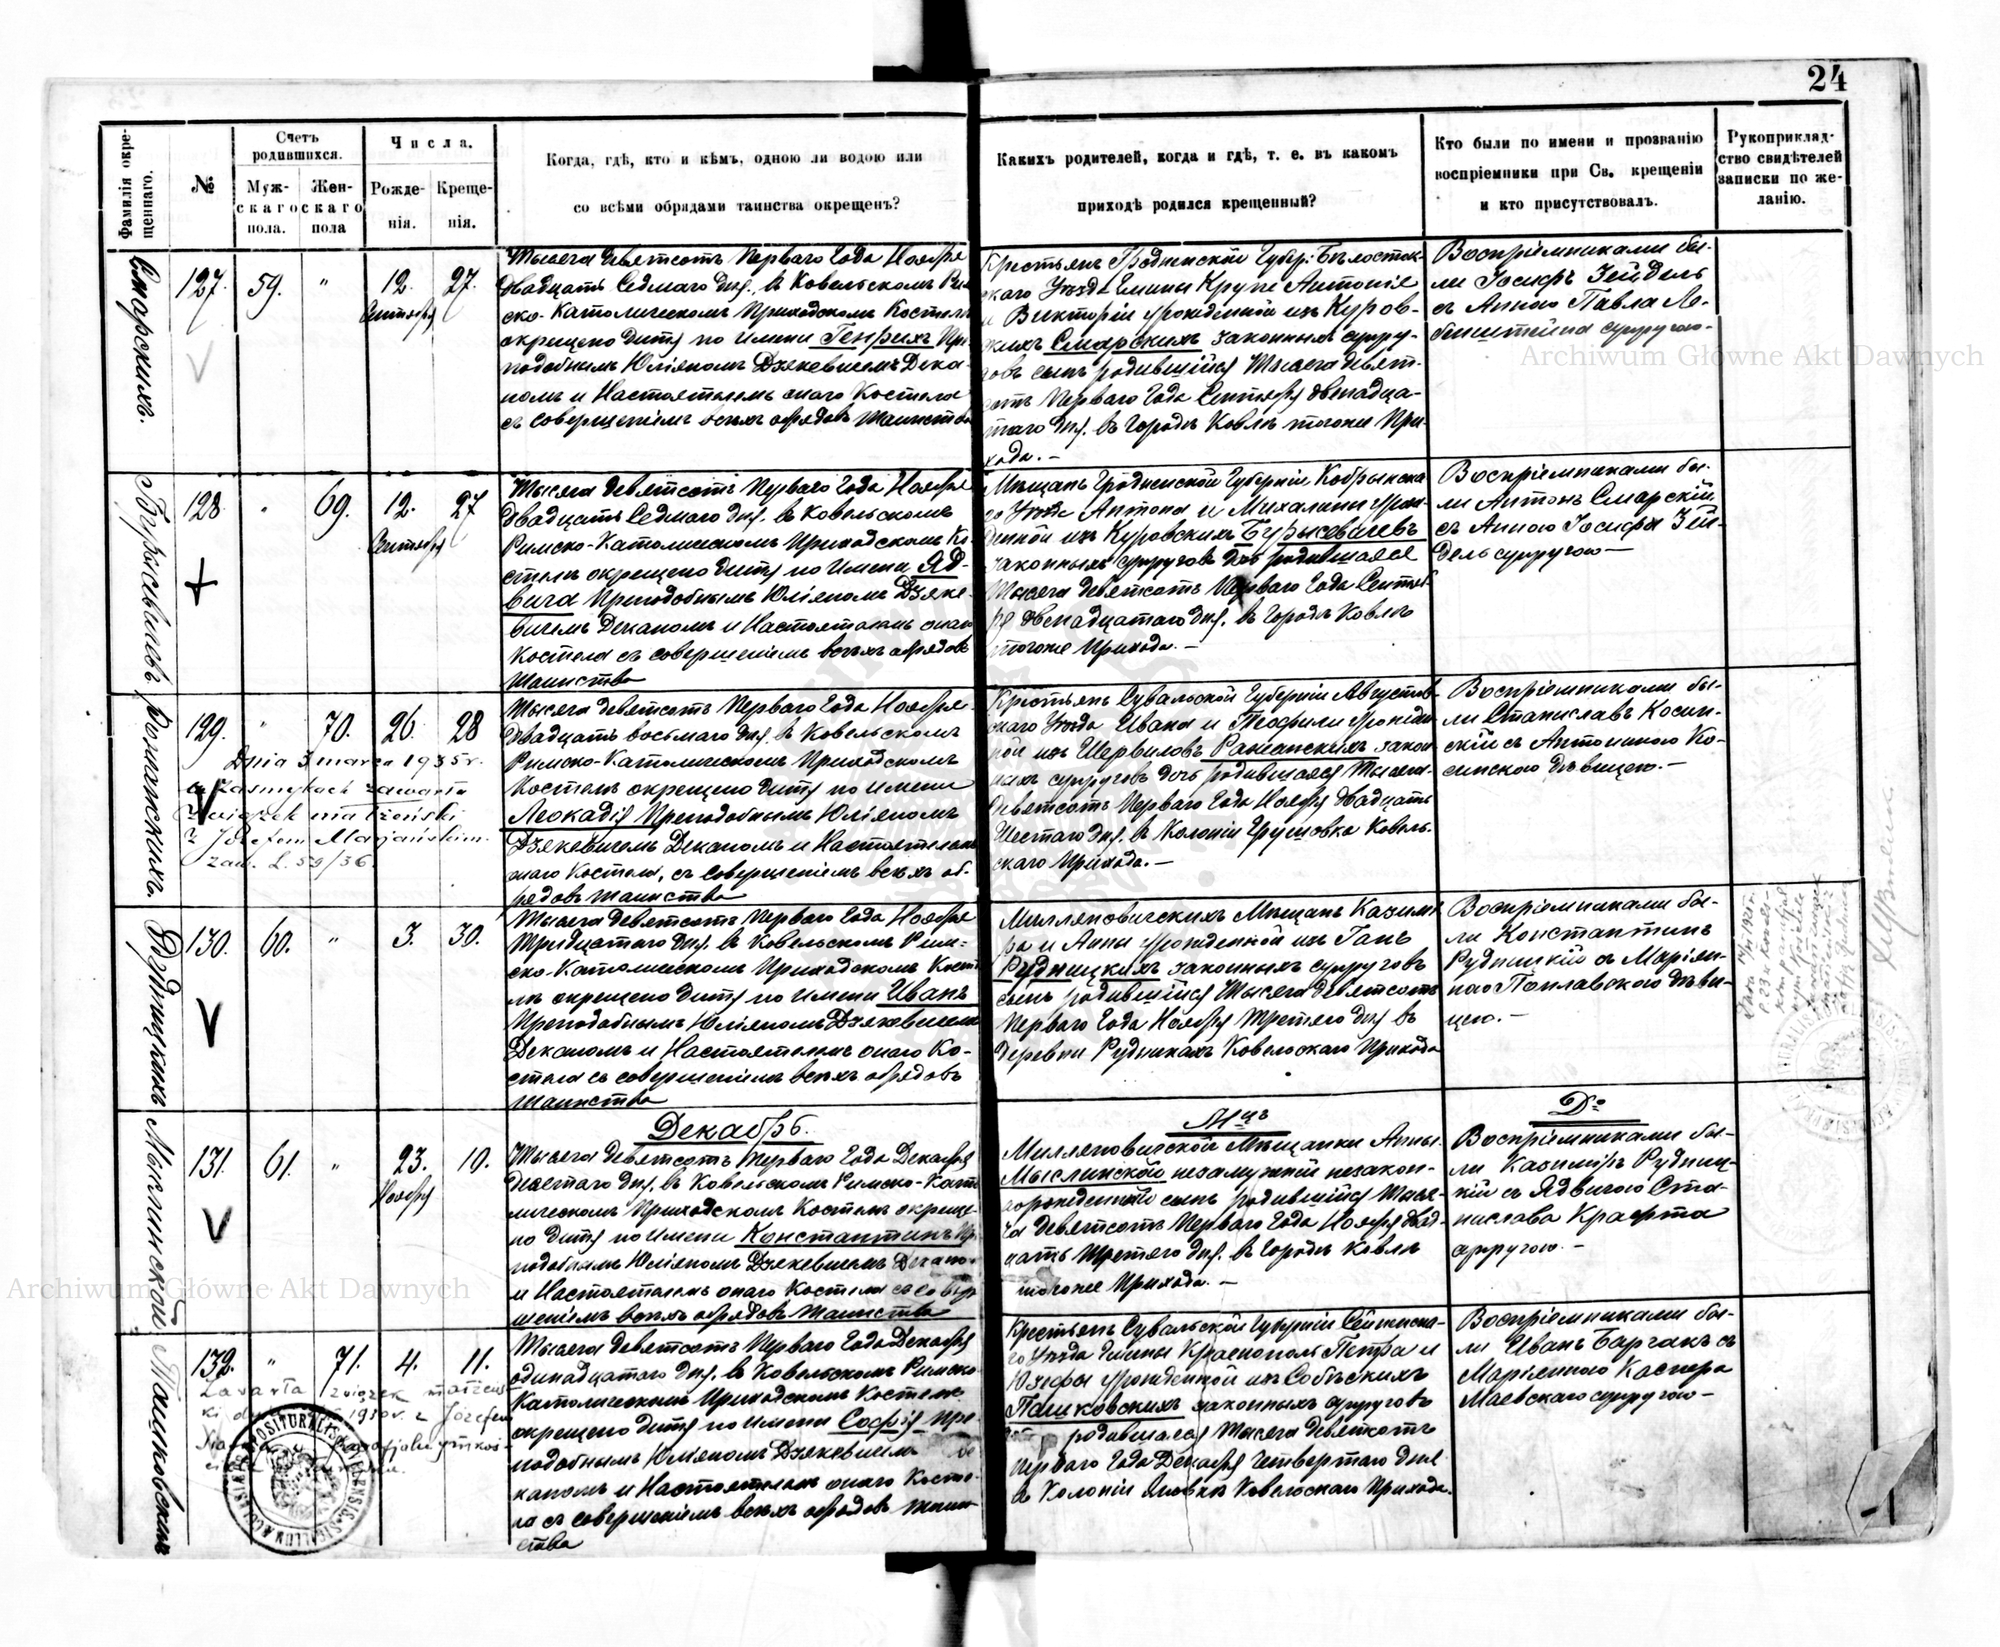 24
Фамилія окре-
щеннаго.
№
Счетъ
родившихся.
Муж-
скаго
пола.
Жен-
скаго
пола
Числа.
Рожде-
нія.
Креще-
нія.
Когда, гдѣ, кто и кѣмъ, одною ли водою или
со всѣми обрядами таинства окрещенъ?
Какихъ родителей, когда и гдѣ, т. е. въ какомъ
приходѣ родился крещенный?
Кто были по имени и прозванію
воспріемники при Св. крещеніи
и кто присутствовалъ.
Рукоприклад-
ство свидѣтелей
записки по же-
ланію.
Смарскихъ.
127. 59. " 12. 27.
Сентября
Тысяча девятсотъ Перваго Года Ноября
Двадцать Седмаго дня, въ Ковельскомъ Рим
ско-Католическомъ Приходскомъ Костелѣ
окрещено дитя по имени Генрихъ Пре
подобнымъ Юліяномъ Дзякевичемъ Дека-
номъ и Настоятелемъ онаго Костела
съ совершеніемъ всѣхъ обрядовъ Таинства
Крестьянъ Гродненской Губер: Бѣлосток-
скаго Уѣзда Гмины Крупе Антонія
и Викторіи урожденной изъ Куров-
скихъ Смарскихъ законныхъ супру-
говъ сынъ родившійся Тысяча девят-
сотъ Перваго Года Сентября двенадца-
таго дня. въ Городѣ Ковлѣ тогоже При-
хода. —
Воспріемниками бы-
ли Іосифъ Зейдель
съ Анною Павла Ло-
бинштейна супругою.
Archiwum Główne Akt Dawnych
128. " 69. 12. 27
Сентября
Тысяча девятсотъ Перваго Года Ноября
Двадцать Седмаго дня. въ Ковельскомъ
Римско-Католическомъ Приходскомъ Ко
стелѣ окрещено дитя по имени Яд-
вига Преподобнымъ Юліяномъ Дзяке-
вичемъ Деканомъ и Настоятелемъ онаго
Костела съ совершеніемъ всѣхъ обрядовъ
Таинства
Мѣщанъ Гродненской Губерніи Кобрынска
го Уѣзда Антона и Михалины урож-
денной изъ Куровскихъ
законныхъ супруговъ дочь родившаяся
Тысяча девятсотъ Перваго Года Сентяб
ря двенадцатаго дня. въ Городѣ Ковлѣ
тогоже Прихода. —
Воспріемниками бы-
ли Антонъ Смарскій
съ Анною Іосифа Зей-
дель супругою —
129. " 70. 26. 28
Dnia 3 marca 1935 r.
w Zasmykach zawarła
związek małżeński
z Józefem Marjańskim.
zaśw. L. 59/36.
Тысяча девятсотъ Перваго Года Ноября
Двадцать восьмаго дня. въ Ковельскомъ
Римско-Католическомъ Приходскомъ
Костелѣ окрещено дитя по имени
Леокадія Преподобнымъ Юліяномъ
Дзякевичемъ Деканомъ и Настоятелемъ
онаго Костела, съ совершеніемъ всѣхъ об-
рядовъ Таинства
Крестьянъ Сувальской Губерніи Августов-
скаго Уѣзда Ивана и Теофили урожден
ной изъ закон
ныхъ супруговъ дочь родившаяся Тысяча
девятсотъ Перваго Года Ноября двадцать
Шестаго дня. въ Колоніи Грушовка Ковель-
скаго Прихода. —
Воспріемниками бы-
ли Станиславъ Косин-
скій съ Антониною Ко-
синскою дѣвицею. —
Рудницкихъ
130. 60. " 3. 30.
Тысяча девятсотъ Перваго Года Ноября
Тридцатаго дня. въ Ковельскомъ Рим-
ско-Католическомъ Приходскомъ Косте
лѣ окрещено дитя по имени Иванъ
Преподобнымъ Юліяномъ Дзякевичемъ
Деканомъ и Настоятелемъ онаго Ко-
стела съ совершеніемъ всѣхъ обрядовъ
Таинства
Миляновичскихъ Мѣщанъ Казими
ра и Анны урожденной изъ Ганъ
Рудницкихъ законныхъ супруговъ
сынъ родившійся Тысяча девятсотъ
Перваго Года Ноября Третяго дня въ
деревни Рудникахъ Ковельскаго Прихода
Воспріемниками бы-
ли Константинъ
Рудницкій съ Маріян-
ною Поплавскою дѣви-
цею. —
Декабрь.
М-цъ
Д-о
Мыслинской
131. 61. " 23. 10.
Ноября
Тысяча девятсотъ Перваго Года Декабря
Десятаго дня, въ Ковельскомъ Римско-Като
лическомъ Приходскомъ Костелѣ окреще-
но дитя по имени Константинъ Пре
подобнымъ Юліяномъ Дзякевичемъ Декано-
и Настоятелемъ онаго Костела съ совер
шеніемъ всѣхъ обрядовъ Таинства
Миляновичской Мѣщанки Анны
Мыслинской незамужней незакон-
норожденный сынъ родившійся Тыся-
ча девятсотъ Перваго Года Ноября двад-
цать Третяго дня. въ Городѣ Ковлѣ
тогоже Прихода. —
Воспріемниками бы-
ли Казиміръ Рудниц-
кій съ Ядвигою Ста-
нислава Крафта
супругою. —
Archiwum Główne Akt Dawnych
Пашковскихъ
132. " 71. 4. 11.
Zawarła związek małżeńs-
1930 r. z Józefem
Тысяча девятсотъ Перваго Года Декабря
одинадцатаго дня. въ Ковельскомъ Римско-
Католическомъ Приходскомъ Костелѣ
окрещено дитя по имени Софія Пре-
подобнымъ Юліяномъ Дзякевичемъ Де-
каномъ и Настоятелемъ онаго Косте-
ла съ совершеніемъ всѣхъ обрядовъ Таин-
ства
Крестьянъ Сувальской Губерніи Сейнска-
го Уѣзда Гмины Краснополь Петра и
Юзефы урожденной изъ Собѣскихъ
Пашковскихъ законныхъ супруговъ
родившаяся Тысяча девятсотъ
Перваго Года Декабря Четвертаго дня
въ Колоніи Яновкѣ Ковельскаго Прихода.
Воспріемниками бы-
ли Иванъ Барганъ съ
Маріянною Каспера
Маевскаго супругою —